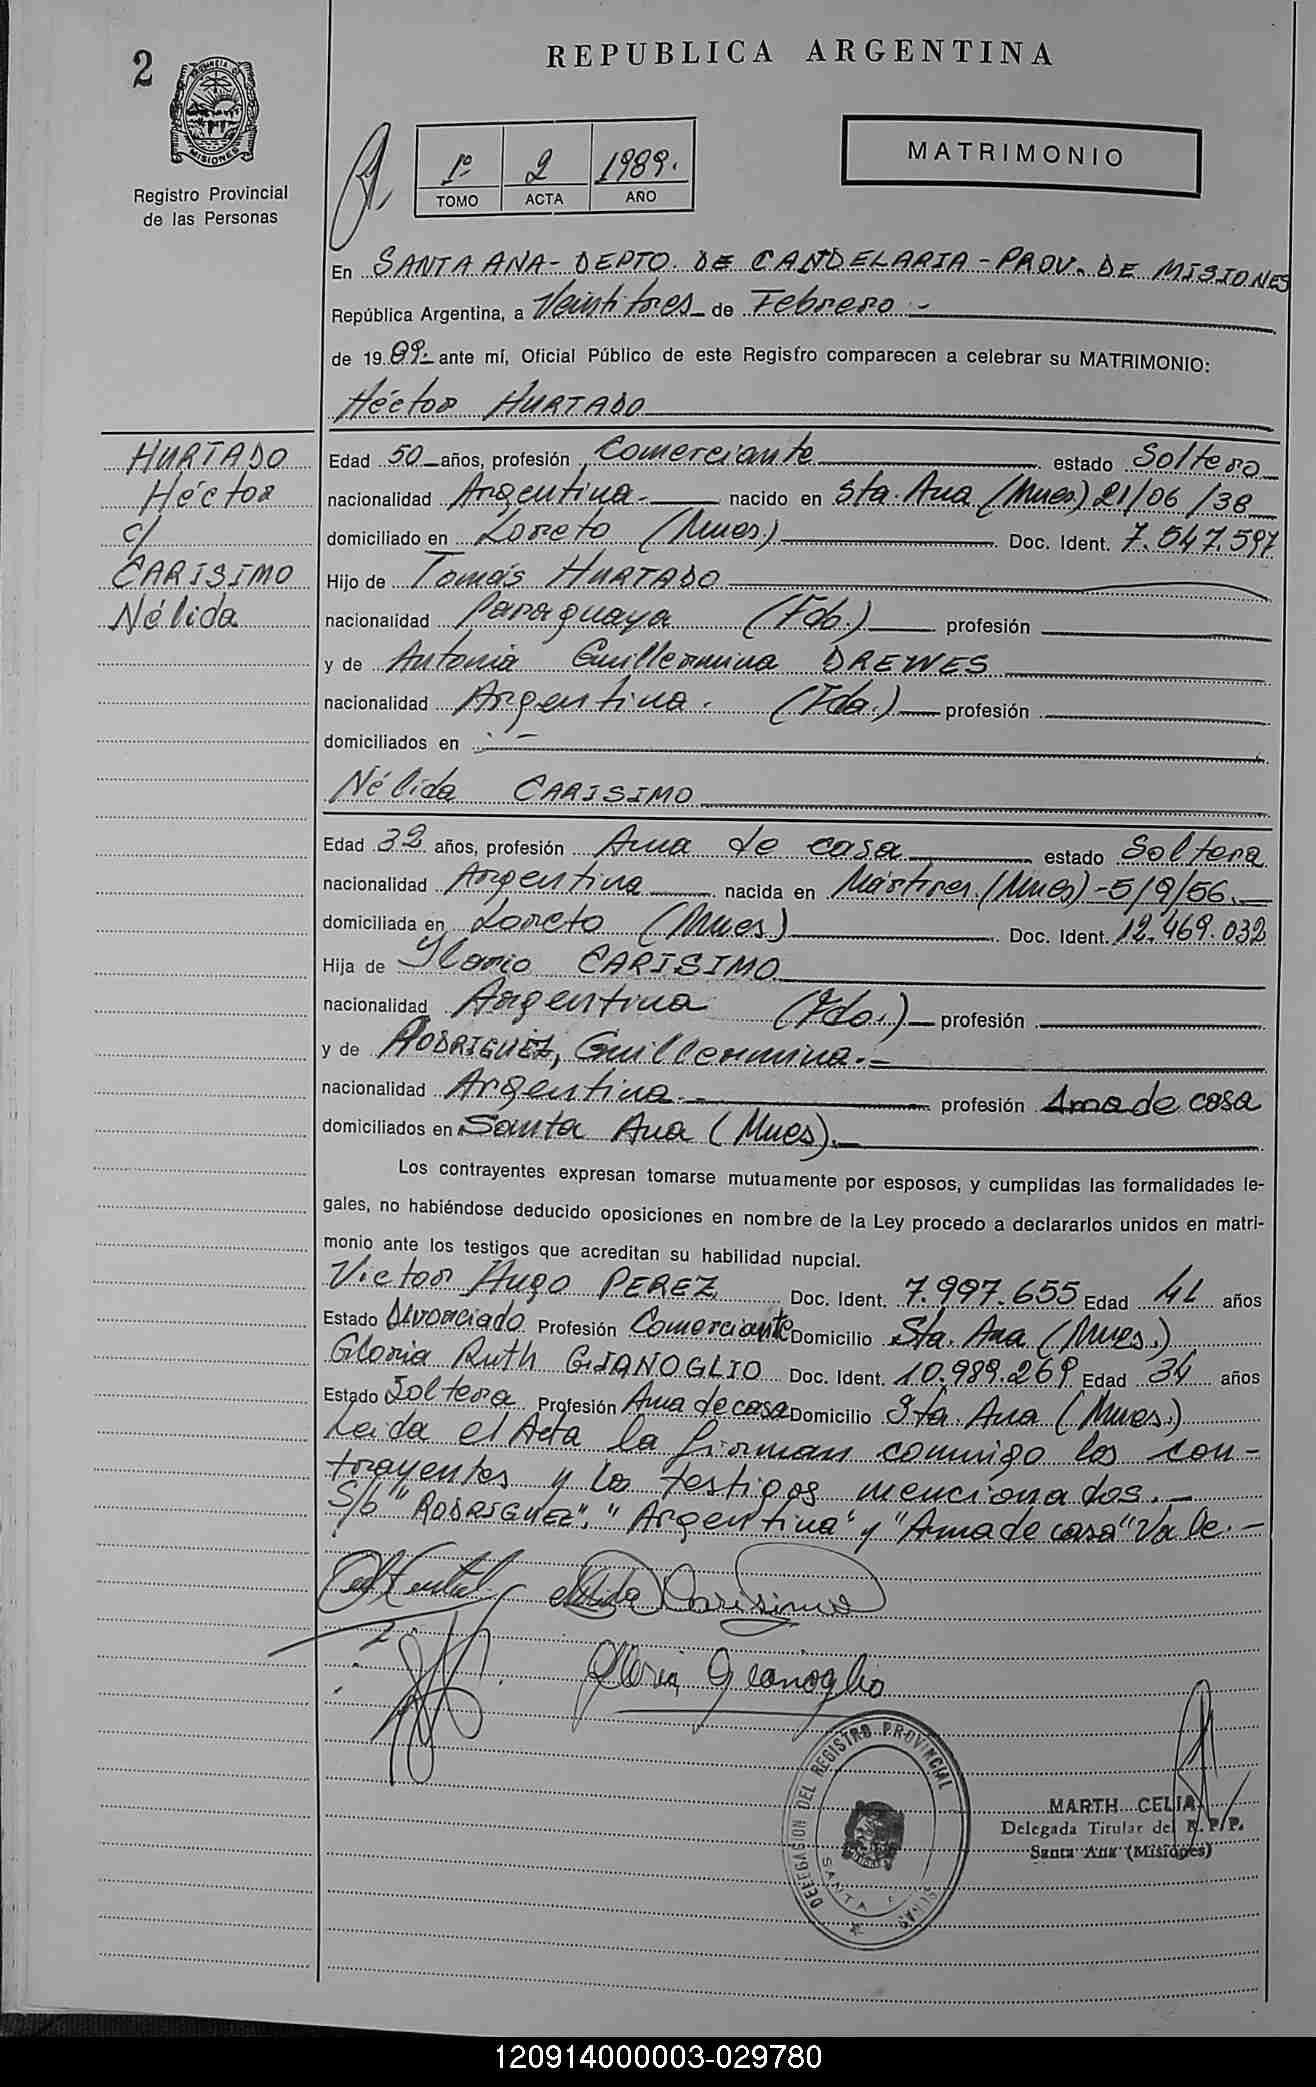 2
REPUBLICA ARGENTINA
MISIONES
Registro Provincial
de las Personas
1º 2 1989.
TOMO ACTA AÑO
MATRIMONIO
En SANTA ANA - DEPTO. DE CANDELARIA - PROV. DE MISIONES
República Argentina, a Veintitres de Febrero.-
de 1989.- ante mí, Oficial Público de este Registro comparecen a celebrar su MATRIMONIO:
Héctor HURTADO
HURTADO
Héctor
c/
CARISIMO
Nélida
Edad 50 años, profesión Comerciante estado Soltero
nacionalidad Argentina.- nacido en Sta. Ana (Mnes.) 21/06/38
domiciliado en Loreto (Mnes.) Doc. Ident. 7.547.597
Hijo de Tomás HURTADO
nacionalidad Paraguaya (Fdo.) profesión
y de Antonia Guillermina DREWES
nacionalidad Argentina. (Fda.) profesión
domiciliados en .-
Nélida CARISIMO
Edad 32 años, profesión Ama de casa estado Soltera
nacionalidad Argentina nacida en Mártires (Mnes) - 5/9/56.
domiciliada en Loreto (Mnes) Doc. Ident. 12.469.032
Hija de Ilario CARISIMO
nacionalidad Argentina (Fdo.) profesión
y de RODRIGUEZ, Guillermina.-
nacionalidad Argentina.- profesión Ama de casa
domiciliados en Santa Ana (Mnes).-
Los contrayentes expresan tomarse mutuamente por esposos, y cumplidas las formalidades le-
gales, no habiéndose deducido oposiciones en nombre de la Ley procedo a declararlos unidos en matri-
monio ante los testigos que acreditan su habilidad nupcial.
Victor Hugo PEREZ Doc. Ident. 7.997.655 Edad 41 años
Estado Divorciado Profesión Comerciante Domicilio Sta. Ana (Mnes.)
Gloria Ruth GIANOGLIO Doc. Ident. 10.989.269 Edad 34 años
Estado Soltera Profesión Ama de casa Domicilio Sta. Ana (Mnes.)
Leida el Acta la firman conmigo los con-
trayentes y los testigos mencionados.-
S/b "RODRIGUEZ", "Argentina" y "Ama de casa" Vale.-
Nélida Carísimo
Gloria Gianoglio
DELEGACION DEL REGISTRO PROVINCIAL
SANTA
MARTH CELIA
Delegada Titular del R.P.P.
Santa Ana (Misiones)
120914000003-029780